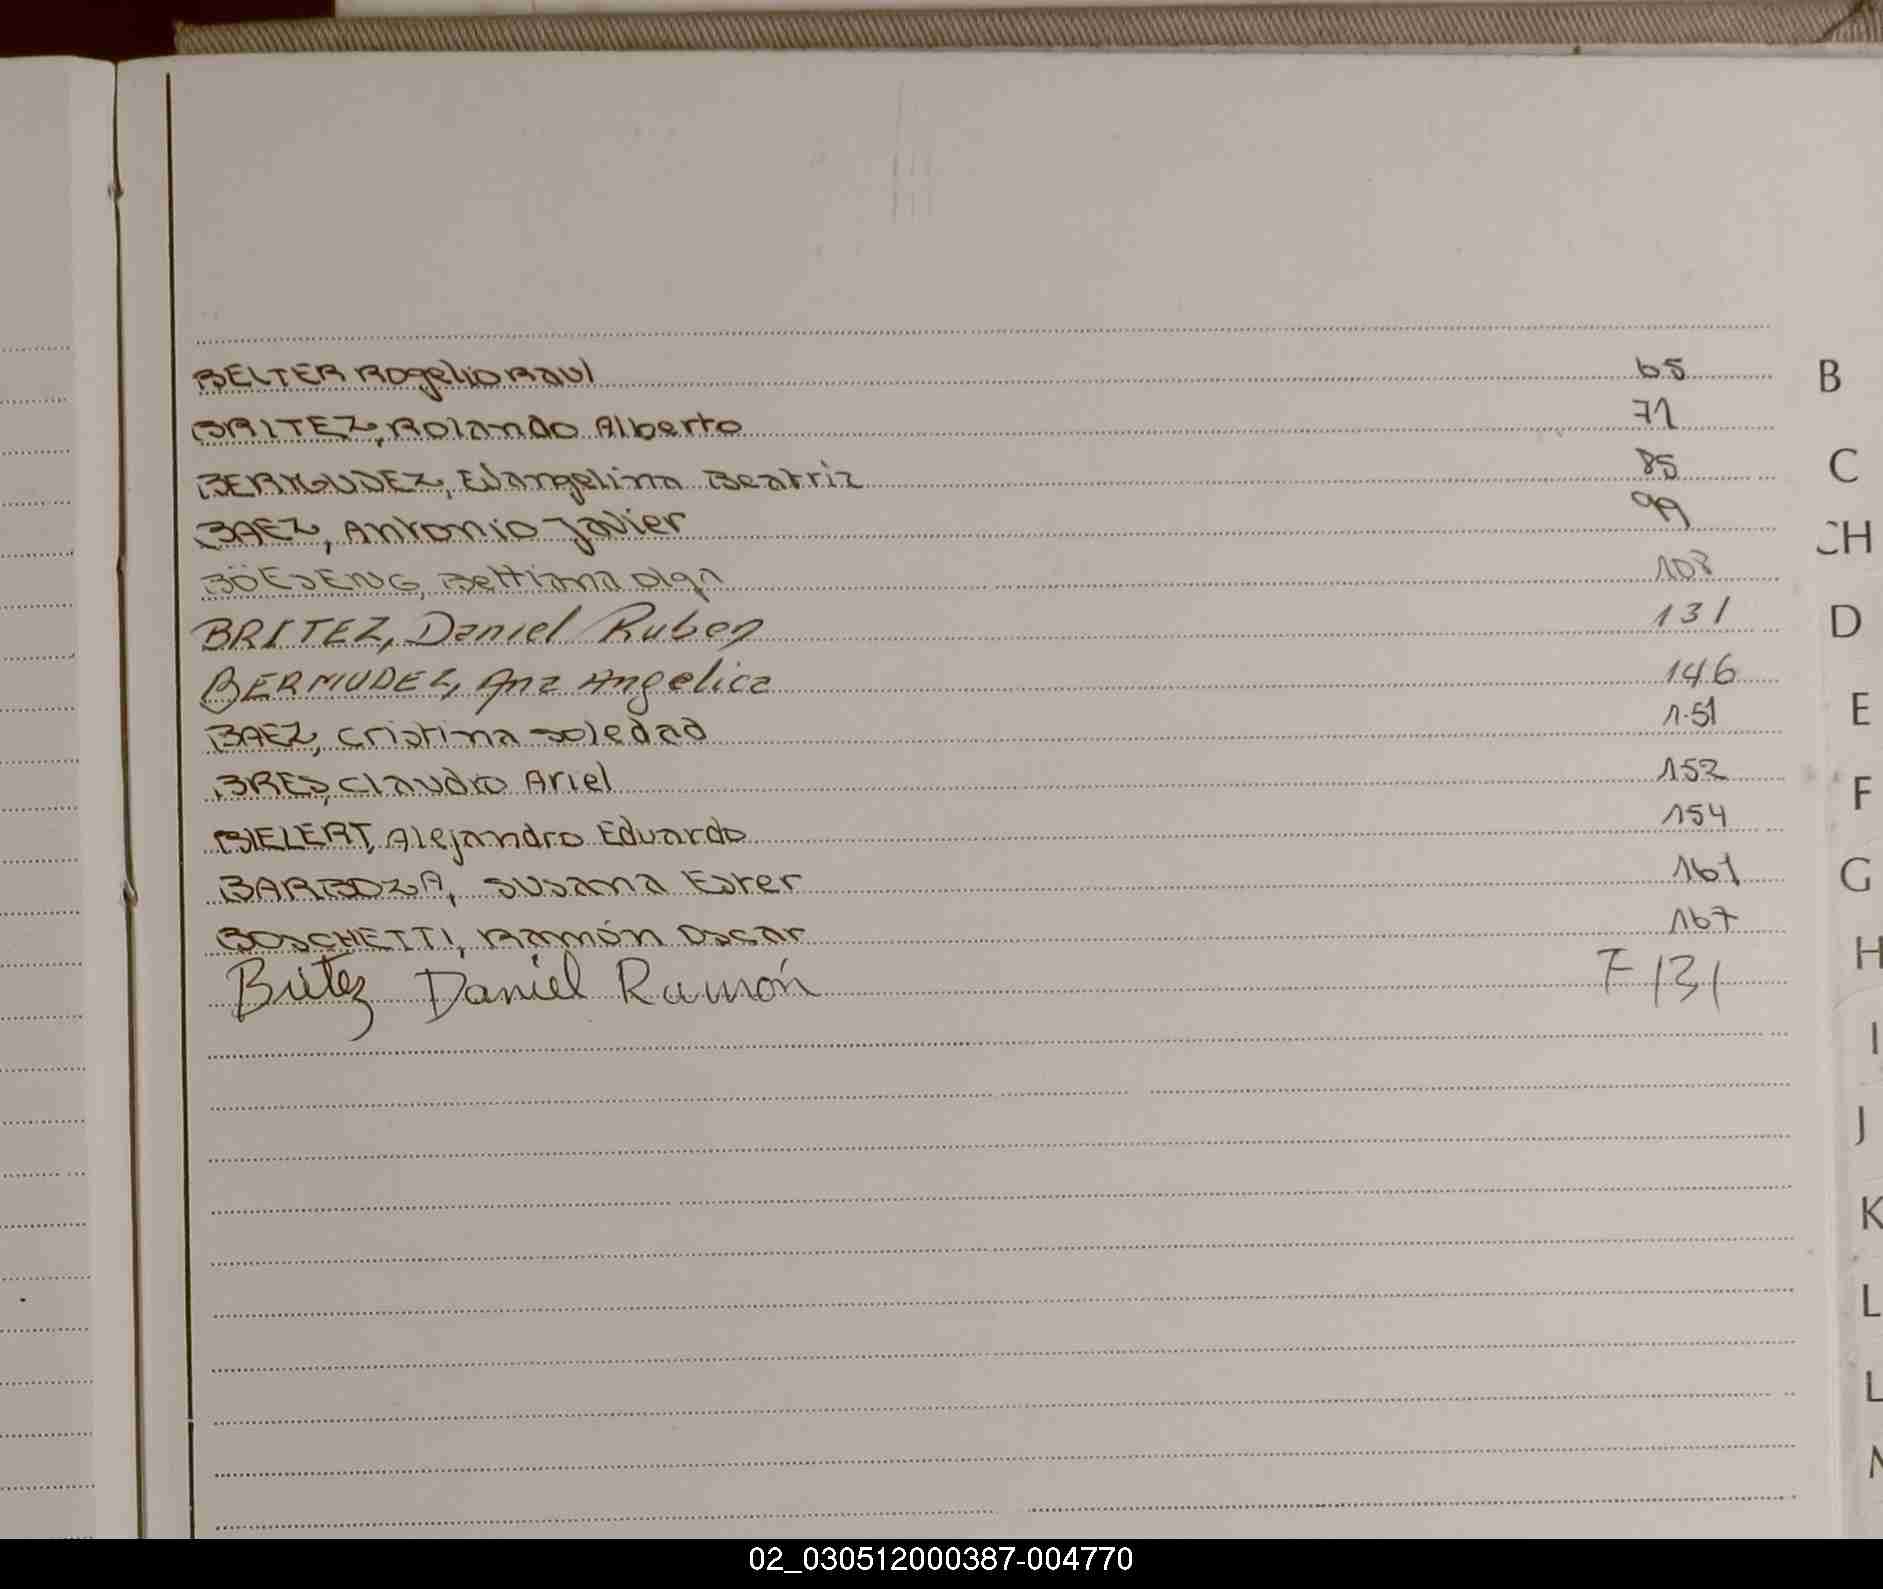 BELTER Rogelio Raul 65
BRITEZ, Rolando Alberto 71
BERMUDEZ, Evangelina Beatriz 85
BAEZ, Antonio Javier 99
BÖESENG, Bettiana Olga 108
BRITEZ, Daniel Ruben 131
BERMUDEZ, Ana Angelica 146
BAEZ, Cristina Soledad 151
BRES, Claudio Ariel 152
BIELERT, Alejandro Eduardo 154
BARBOZA, Susana Ester 161
BOSCHETTI, Ramón Oscar 167
Britez Daniel Ramón F 131
B
C
CH
D
E
F
G
H
I
J
K
L
L
M
02_030512000387-004770